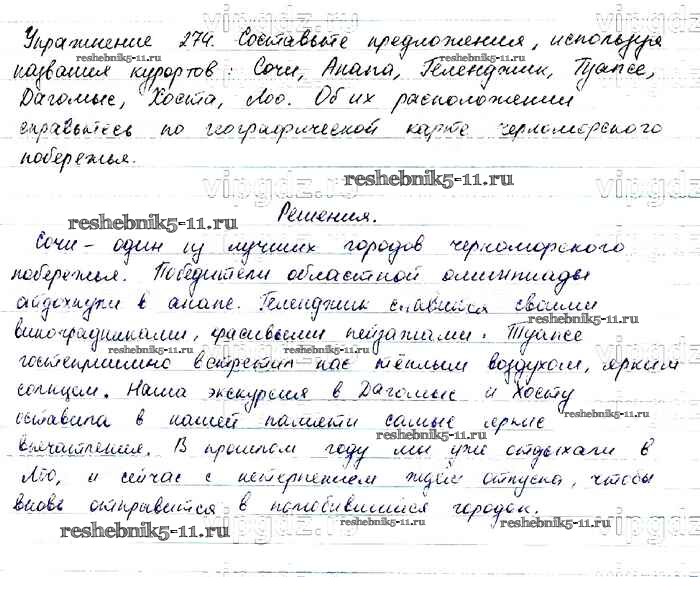 Упражнение 274. Составьте предложения, используя
названия курортов: Сочи, Анапа, Геленджик, Туапсе,
reshebnik5-11.ru reshebnik5-11.ru
Дагомыс, Хоста, Лоо. Об их расположении
справьтесь по географической карте черноморского
побережья.
reshebnik5-11.ru
Решения.
reshebnik5-11.ru
Сочи – один из лучших городов черноморского
побережья. Победители областной олимпиады
в анапе. Геленджик славится своими
reshebnik5-11.ru
виноградниками, красивыми пейзажами. Туапсе
reshebnik5-11.ru
гостеприимно встретил нас тёплым воздухом, ярким
солнцем. Наша экскурсия в Дагомыс и Хосту
reshebnik5-11.ru
оставила в нашей памяти самые яркие
reshebnik5-11.ru
впечатления. В прошлом году мы уже отдыхали в
Лоо, и сейчас с нетерпением ждём отпуска, чтобы
вновь отправится в полюбившийся городок.
reshebnik5-11.ru reshebnik5-11.ru